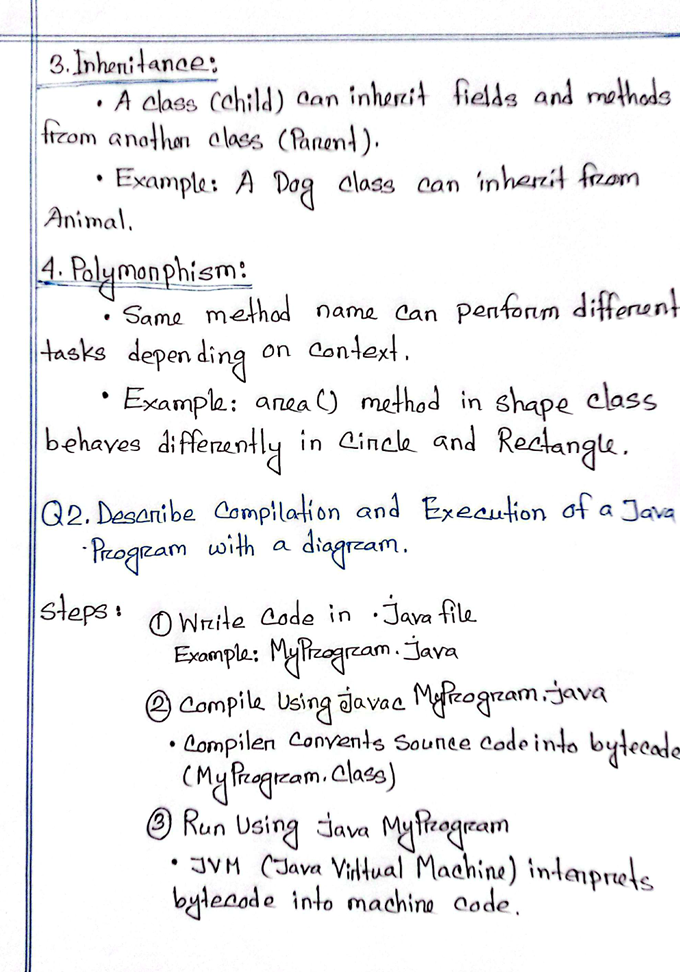 3. Inheritance:
• A class (child) can inherit fields and methods
from another class (Parent).
• Example: A Dog class can inherit from
Animal.
4. Polymorphism:
• Same method name can perform different
tasks depending on context.
• Example: area() method in shape class
behaves differently in Circle and Rectangle.
Q2. Describe Compilation and Execution of a Java
Program with a diagram.
Steps: ① Write Code in .Java file
Example: MyProgram.java
② Compile Using javac MyProgram.java
• Compiler Converts Source code into bytecode
(MyProgram.Class)
③ Run Using java MyProgram
• JVM (Java Virtual Machine) interprets
bytecode into machine code.